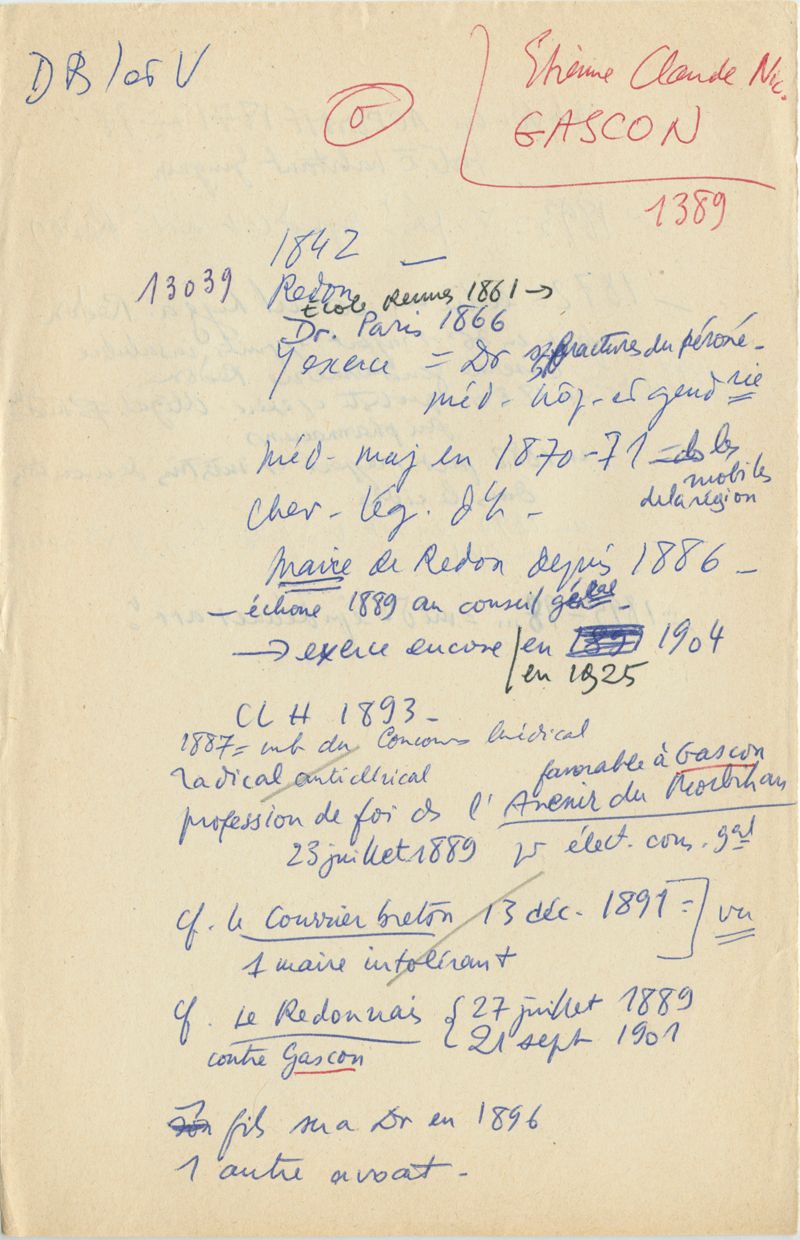 Etienne Claude Nic.
GASCON
1389
1842 —
13039 Redon
Ecole Rennes 1861 →
Dr. Paris 1866
y exerce = Dr fractures du péroné -
méd - hôp - et gendrie
méd - maj en 1870-71 = les mobiles
de la région
chev - Lég. d'H -
maire de Redon depuis 1886 -
— échoue 1889 au conseil général -
→ exerce encore en 1904
en 1925
CLH 1893 -
1887 = mb du Concours Médical
radical anticlérical
favorable à Gascon
profession de foi ds l'Avenir du Morbihan
23 juillet 1889 pr élect. cons. gal
cf. le Courrier breton 13 déc. 1891 = vu
1 maire intolérant
cf. Le Redonnais { 27 juillet 1889
21 sept 1901
contre Gascon
1 fils sera Dr en 1896
1 autre avocat -